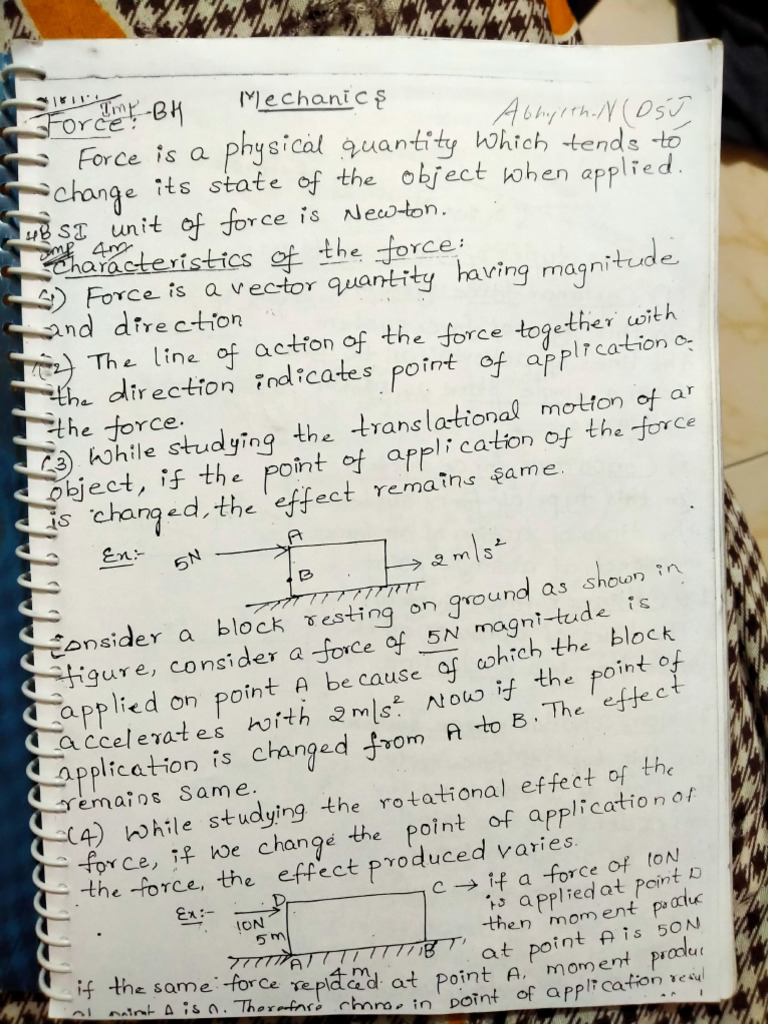 Mechanics
Imp BH
Force:
Force is a physical quantity which tends to
change its state of the object when applied.
SI unit of force is Newton.
Imp 4m
Characteristics of the force:
1) Force is a vector quantity having magnitude
and direction
(2) The line of action of the force together with
the direction indicates point of application o
the force.
(3) While studying the translational motion of ar
object, if the point of application of the force
is changed, the effect remains same.
Ex:- 5N A B 2m/s²
Consider a block resting on ground as shown in
figure, consider a force of 5N magni-tude is
applied on point A because of which the block
accelerates with 2m/s². Now if the point of
application is changed from A to B. The effect
remains same.
(4) While studying the rotational effect of the
force, if we change the point of application of
the force, the effect produced varies.
Ex:- 10N D 5m A B C → if a force of 10N
is applied at point D
then moment produc
at point A is 50N
4m
if the same force replaced at point A, moment produc
at point A is 0. Therefore change in point of application resul